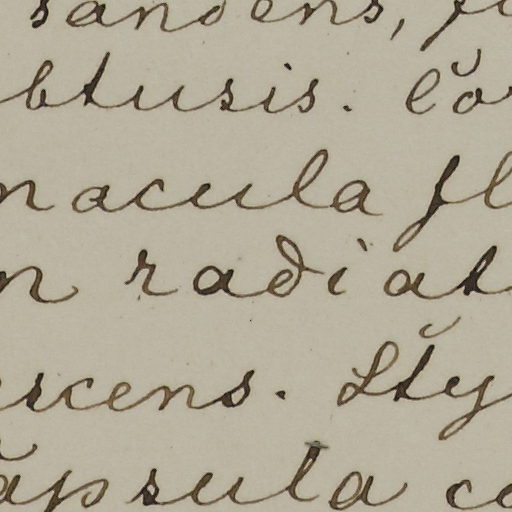 sandens, fl
btusis. Co
macula fl
n radiat
escens. Sty
apsula co